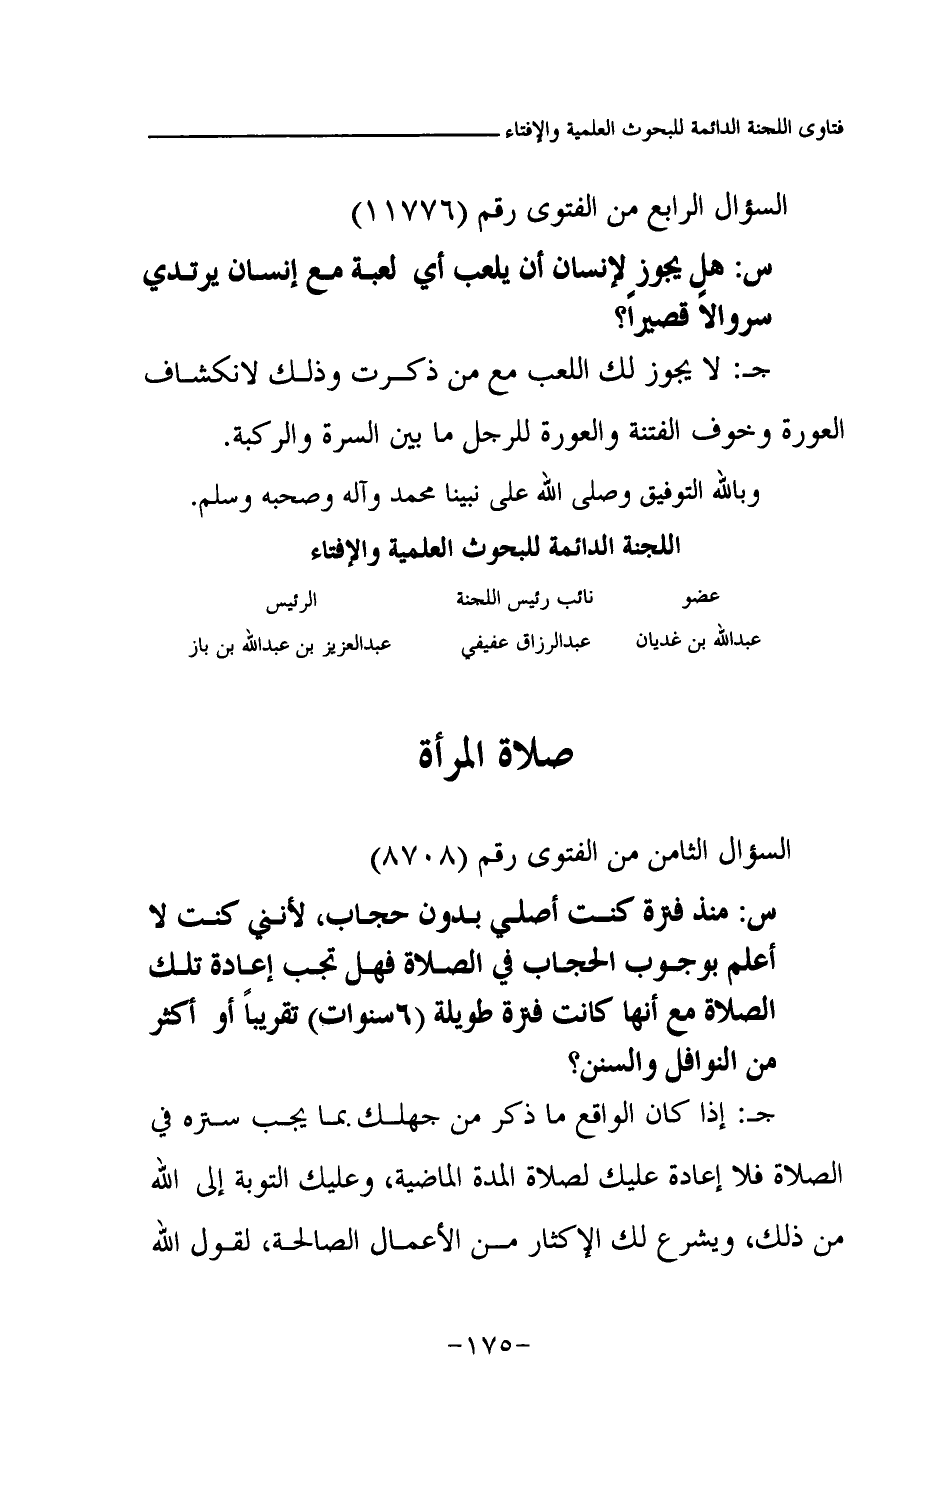 فتاوى اللجنة الدائمة للبحوث العلمية والإفتاء
السؤال الرابع من الفتوى رقم (١١٧٧٦)
س: هل يجوز لإنسان أن يلعب أي لعبة مع إنسان يرتدي
سروالاً قصيراً؟
جـ: لا يجوز لك اللعب مع من ذكرت وذلك لانكشاف
العورة وخوف الفتنة والعورة للرجل ما بين السرة والركبة.
وبالله التوفيق وصلى الله على نبينا محمد وآله وصحبه وسلم.
اللجنة الدائمة للبحوث العلمية والإفتاء
عضو نائب رئيس اللجنة الرئيس
عبدالله بن غديان عبدالرزاق عفيفي عبدالعزيز بن عبدالله بن باز
صلاة المرأة
السؤال الثامن من الفتوى رقم (٨٧٠٨)
س: منذ فترة كنت أصلي بدون حجاب، لأنني كنت لا
أعلم بوجوب الحجاب في الصلاة فهل تجب إعادة تلك
الصلاة مع أنها كانت فترة طويلة (٦سنوات) تقريباً أو أكثر
من النوافل والسنن؟
جـ: إذا كان الواقع ما ذكر من جهلك بما يجب ستره في
الصلاة فلا إعادة عليك لصلاة المدة الماضية، وعليك التوبة إلى الله
من ذلك، ويشرع لك الإكثار من الأعمال الصالحة، لقول الله
-١٧٥-